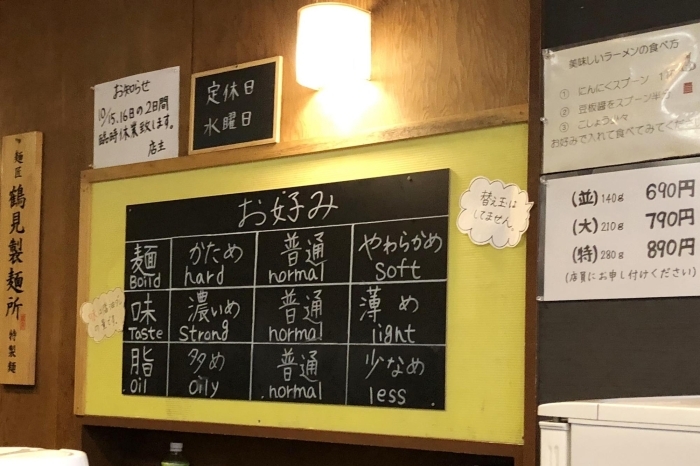 麺匠 鶴見製麺所 特製麺
お知らせ
10/15.16日の2日間
臨時休業致します。
店主
定休日
水曜日
お好み
麺 かため 普通 やわらかめ
Boild hard normal soft
味 濃いめ 普通 薄め
Taste Strong normal light
脂 多め 普通 少なめ
.oil oily .normal less .
替え玉は
してません。
美味しいラーメンの食べ方
① にんにくスプーン
② 豆板醤をスプーン
③ こしょう
お好みで入れて食べてみてく
(並) 140g 690円
(大) 210g 790円
(特) 280g 890円
(店員にお申し付けください)